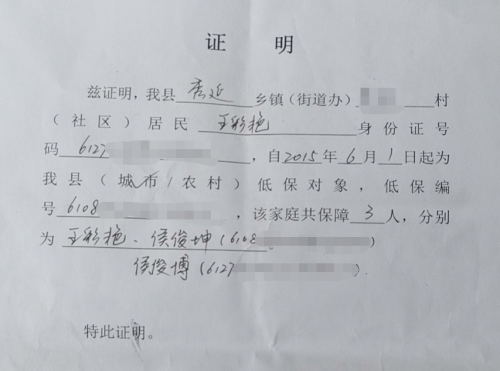 证 明
兹证明，我县 秀延 乡镇（街道办） 村
（社区）居民 王彩艳 身份证号
码 6127 ，自2015年 6 月 1 日起为
我县（城市/农村）低保对象，低保编
号 6108 ，该家庭共保障 3 人，分别
为 王彩艳、侯俊坤（6108 ）
侯俊博（6127 ）
特此证明。